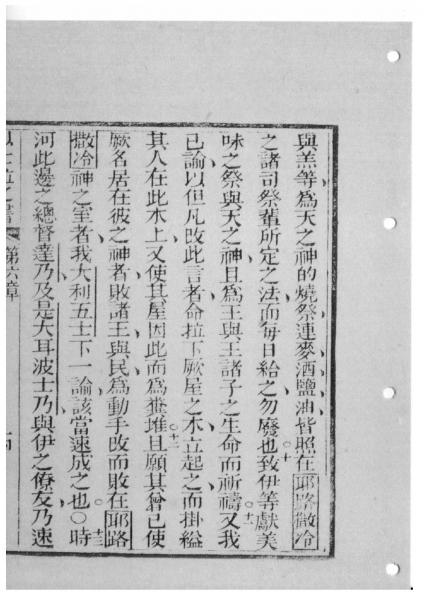 與羔等為天之神的燒祭連麥酒鹽油皆照在耶路撒冷
之諸司祭輩所定之法而每日給之勿廢也十致伊等獻美
味之祭與天之神且為王與王諸子之生命而祈禱十一又我
已諭以但凡改此言者命拉下厥屋之木立起之而掛縊
其人在此木上又使其屋因此而為糞堆十二且願其曾已使
厥名居在彼之神者敗諸王與民為動手改而敗在耶路
撒冷神之室者我大利五士下一諭該當速成之也○十三時
河此邊之總督達乃及是大耳波士乃與伊之僚友乃速
以士拉之書 第六章